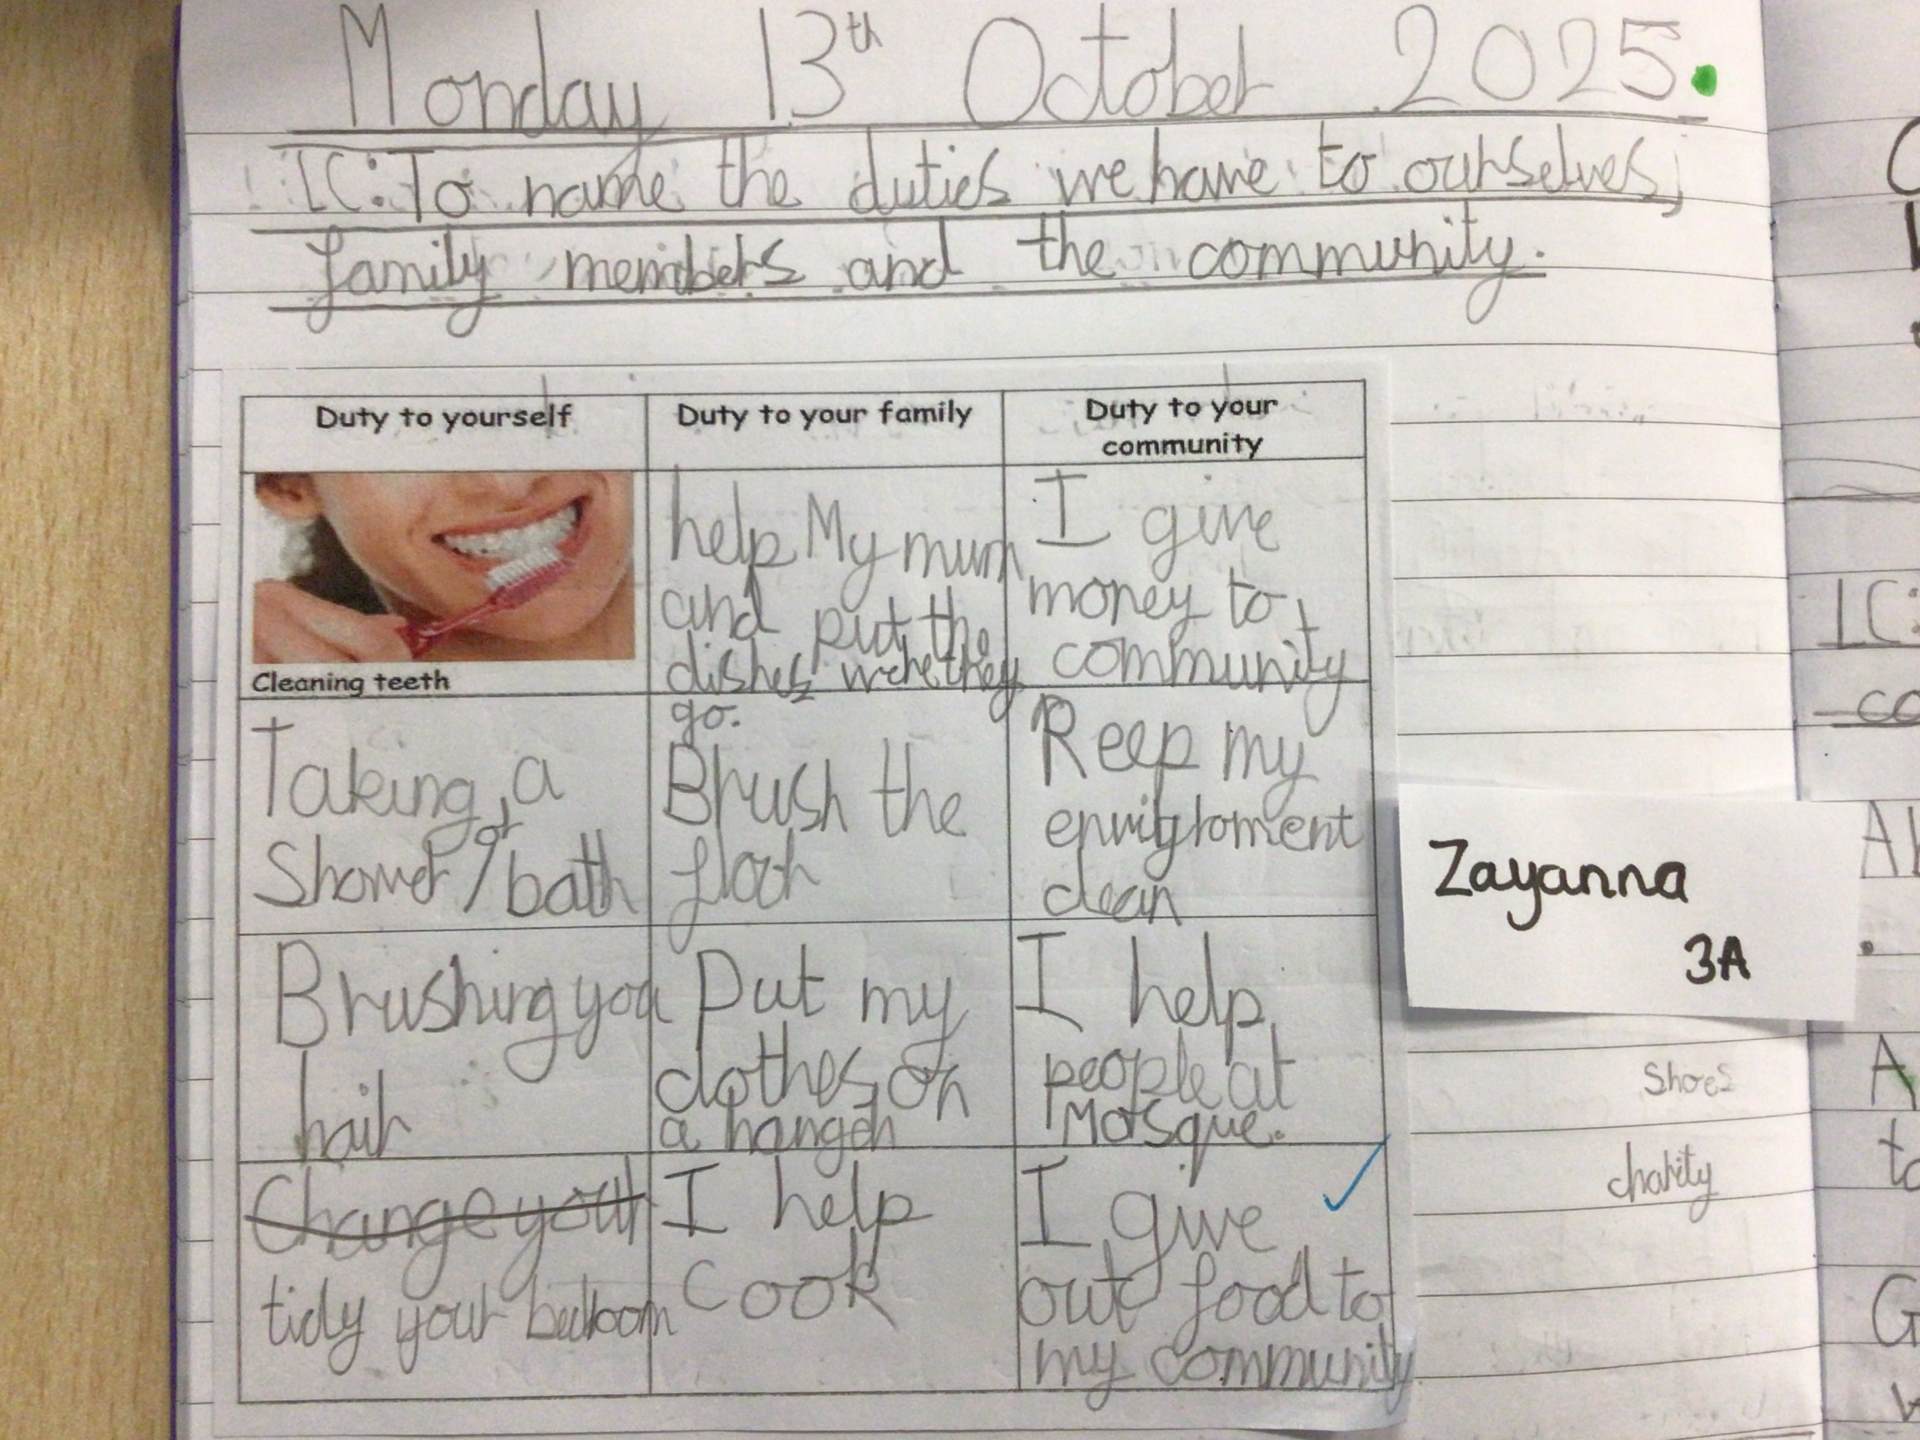 Monday 13th October 2025.
LC: To name the duties we have to ourselves,
family members and the community.
Duty to yourself
Duty to your family
Duty to your
community
Cleaning teeth
help My mum
and put the
dishes were they
go.
I give
money to
community
Taking a
or
Shower / bath
Brush the
floor
Keep my
envigroment
clean
Brushing you
hair
Put my
clothes on
a hanger
I help
people at
Mosque.
Change your
tidy your bedroom
I help
cook
I give
out food to
my community
Zayanna
3A
shoes
charity
LC:
co